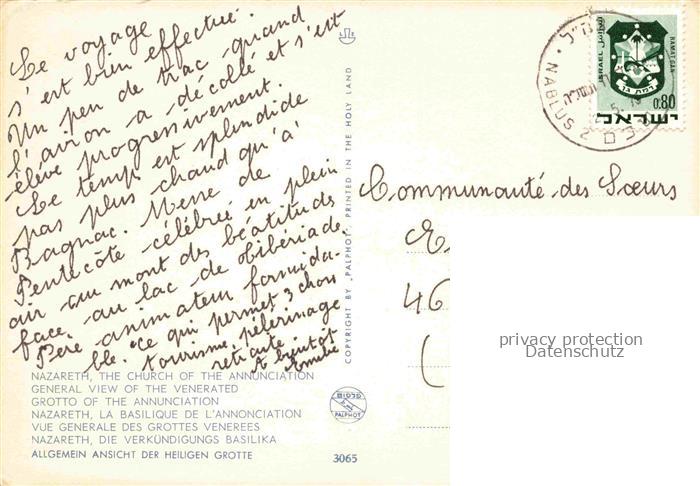 Le voyage
s'est bien effectué.
Un peu de trac quand
l'avion a décollé et s'est
élevé progressivement.
Le temps est splendide
pas plus chaud qu'à
Bagnac. Messe de
Pentecôte célébrée en plein
air au mont des béatitudes
face au lac de Tibériade.
Père animateur formida-
ble. Ce qui permet 3 choses
tourisme, pélerinage
retraite
A bientôt
NAZARETH, THE CHURCH OF THE ANNUNCIATION
GENERAL VIEW OF THE VENERATED
GROTTO OF THE ANNUNCIATION
NAZARETH, LA BASILIQUE DE L'ANNONCIATION
VUE GENERALE DES GROTTES VENEREES
NAZARETH, DIE VERKÜNDIGUNGS BASILIKA
ALLGEMEIN ANSICHT DER HEILIGEN GROTTE
3065
PALPHOT
COPYRIGHT BY „PALPHOT„ PRINTED IN THE HOLY LAND
NABLUS 2
ISRAEL
RAMAT GAN
רמת גן
0.80
ישראל
Communauté des Sœurs
46
privacy protection
Datenschutz